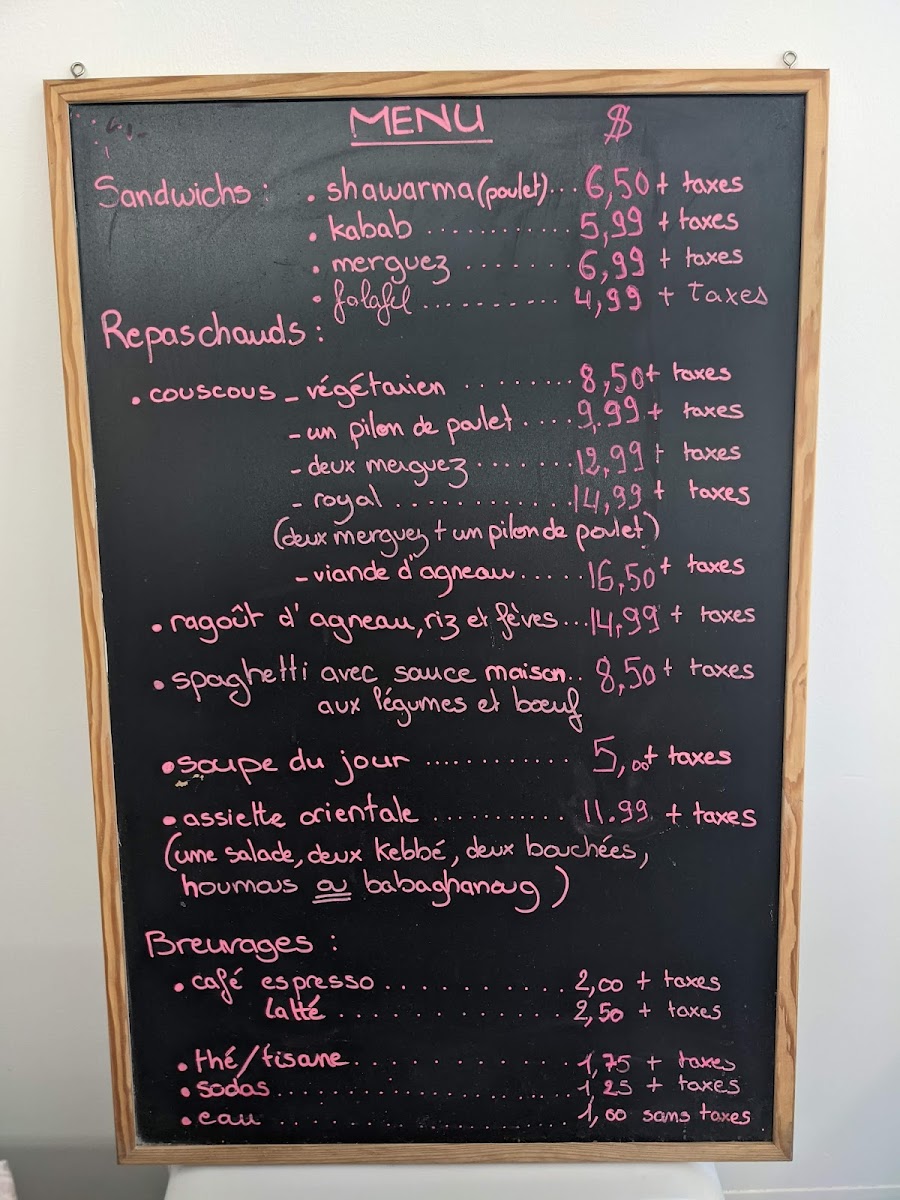 MENU $
Sandwichs : • shawarma (poulet)... 6,50 + taxes
• kabab .............. 5,99 + taxes
• merguez ........ 6,99 + taxes
• falafil ........... 4,99 + taxes
Repas chauds :
• couscous - végétarien ........ 8,50 + taxes
- un pilon de poulet .... 9.99 + taxes
- deux merguez ....... 12,99 + taxes
- royal ............ 14,99 + taxes
(deux merguez + un pilon de poulet)
- viande d'agneau..... 16,50 + taxes
• ragoût d'agneau, riz et fèves...14,99 + taxes
• spaghetti avec sauce maison.. 8,50 + taxes
aux légumes et bœuf
• soupe du jour ............ 5,00 + taxes
• assiette orientale ........... 11.99 + taxes
(une salade, deux kebbé, deux bouchées,
houmous ou babaghanoug)
Breuvages :
• café espresso ........... 2,00 + taxes
latté .............. 2,50 + taxes
• thé/tisane............. 1,75 + taxes
• sodas...................... 1 25 + taxes
• eau ..................... 1,00 sans taxes